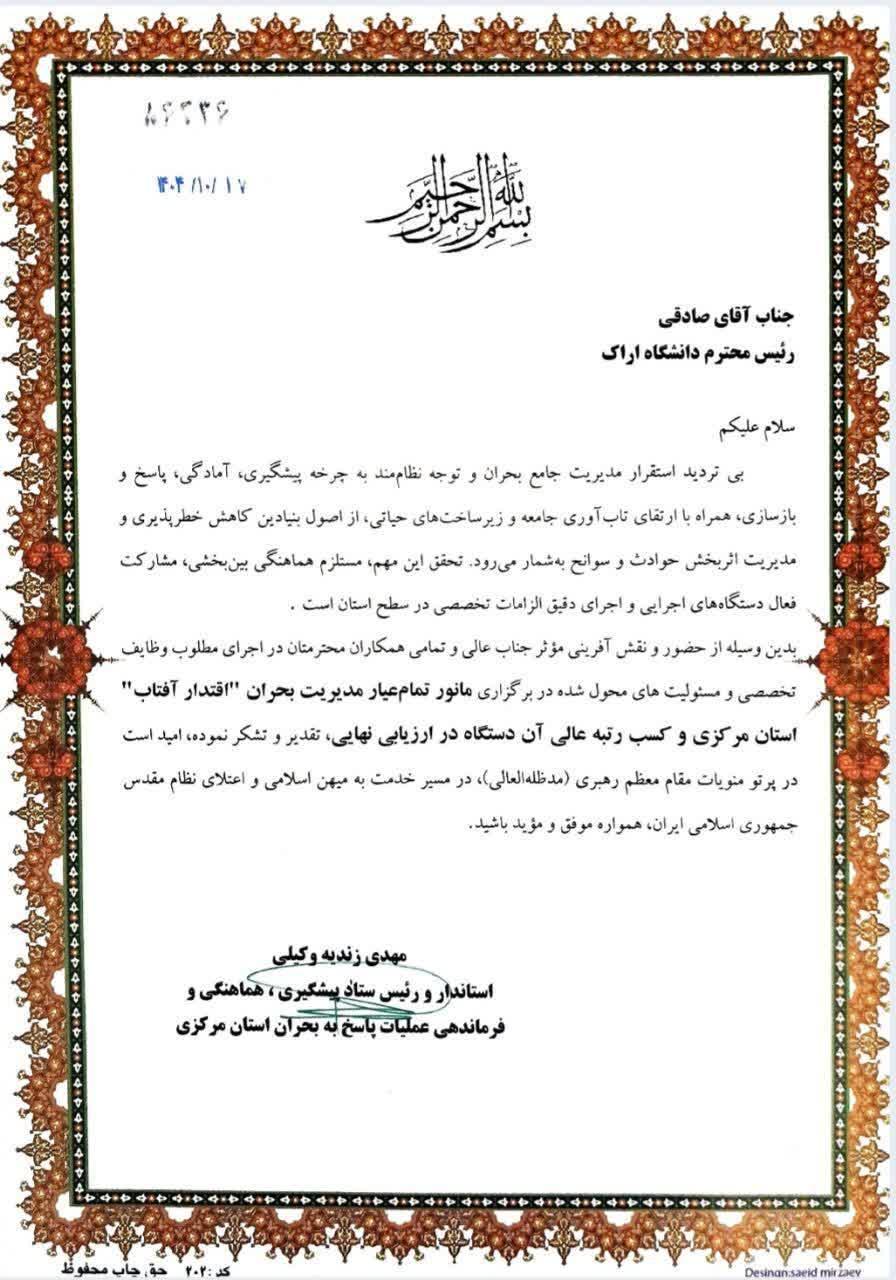 ۸۶۴۳۶
۱۴۰۴/۱۰/۱۷
بسم الله الرحمن الرحیم
جناب آقای صادقی
رئیس محترم دانشگاه اراک
سلام علیکم
بی تردید استقرار مدیریت جامع بحران و توجه نظام‌مند به چرخه پیشگیری، آمادگی، پاسخ و
بازسازی، همراه با ارتقای تاب‌آوری جامعه و زیرساخت‌های حیاتی، از اصول بنیادین کاهش خطرپذیری و
مدیریت اثربخش حوادث و سوانح به‌شمار می‌رود. تحقق این مهم، مستلزم هماهنگی بین‌بخشی، مشارکت
فعال دستگاه‌های اجرایی و اجرای دقیق الزامات تخصصی در سطح استان است .
بدین وسیله از حضور و نقش آفرینی مؤثر جناب عالی و تمامی همکاران محترمتان در اجرای مطلوب وظایف
تخصصی و مسئولیت های محول شده در برگزاری مانور تمام‌عیار مدیریت بحران "اقتدار آفتاب"
استان مرکزی و کسب رتبه عالی آن دستگاه در ارزیابی نهایی، تقدیر و تشکر نموده، امید است
در پرتو منویات مقام معظم رهبری (مدظله‌العالی)، در مسیر خدمت به میهن اسلامی و اعتلای نظام مقدس
جمهوری اسلامی ایران، همواره موفق و مؤید باشید.
مهدی زندیه وکیلی
استاندار و رئیس ستاد پیشگیری ، هماهنگی و
فرماندهی عملیات پاسخ به بحران استان مرکزی
کد :۲۰۲ حق چاپ محفوظ
Desinan:saeid mirzaev